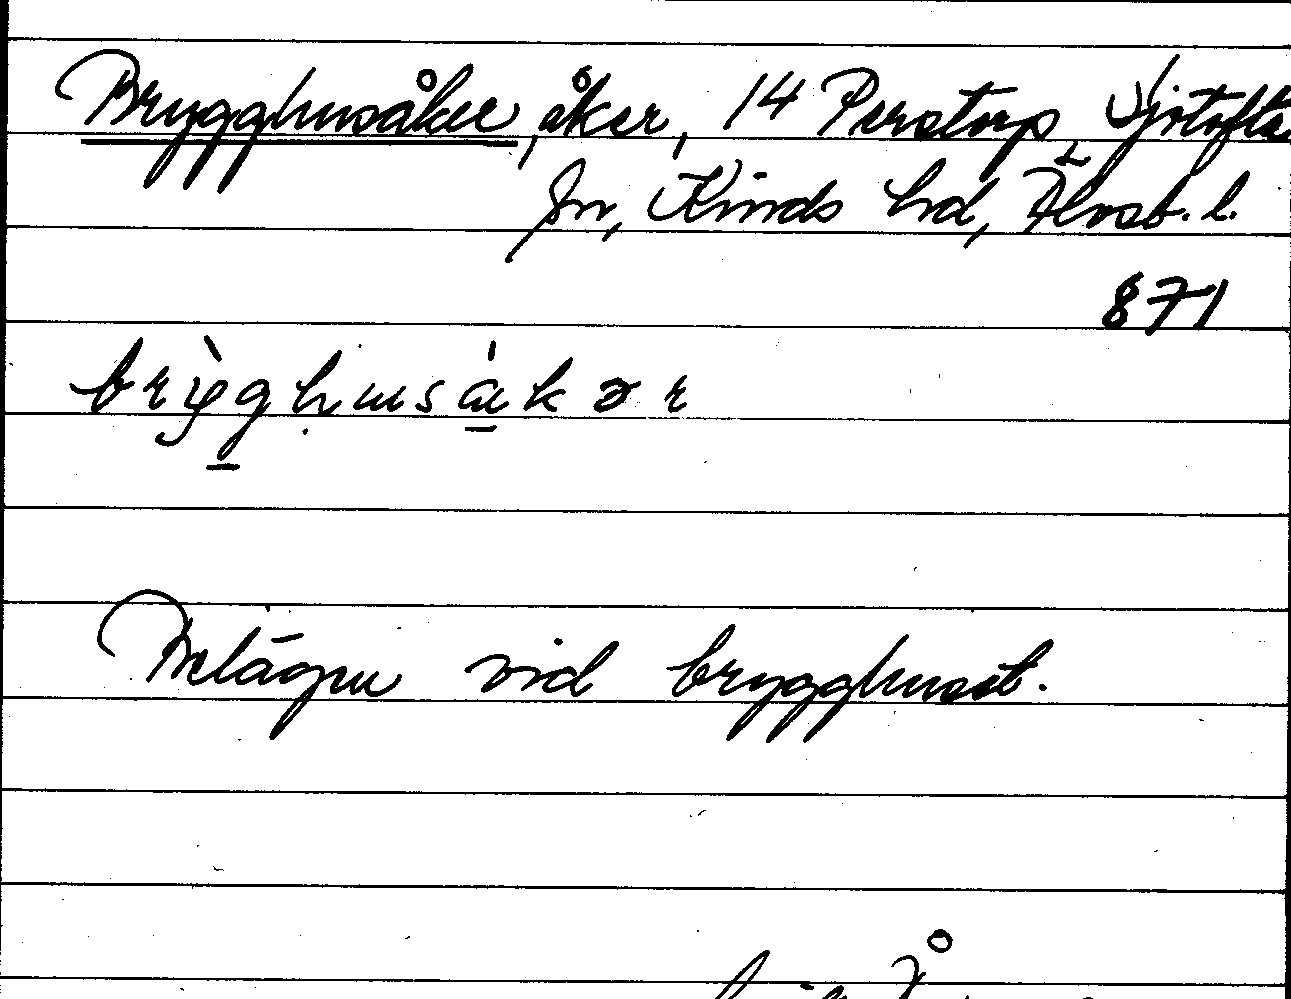 Brygghusåker, åker, 14 Perstorp, Sjötofta
sn, Kinds hd, Älvsb. l.
871
brỳghusákər
Belägen vid brygghuset.